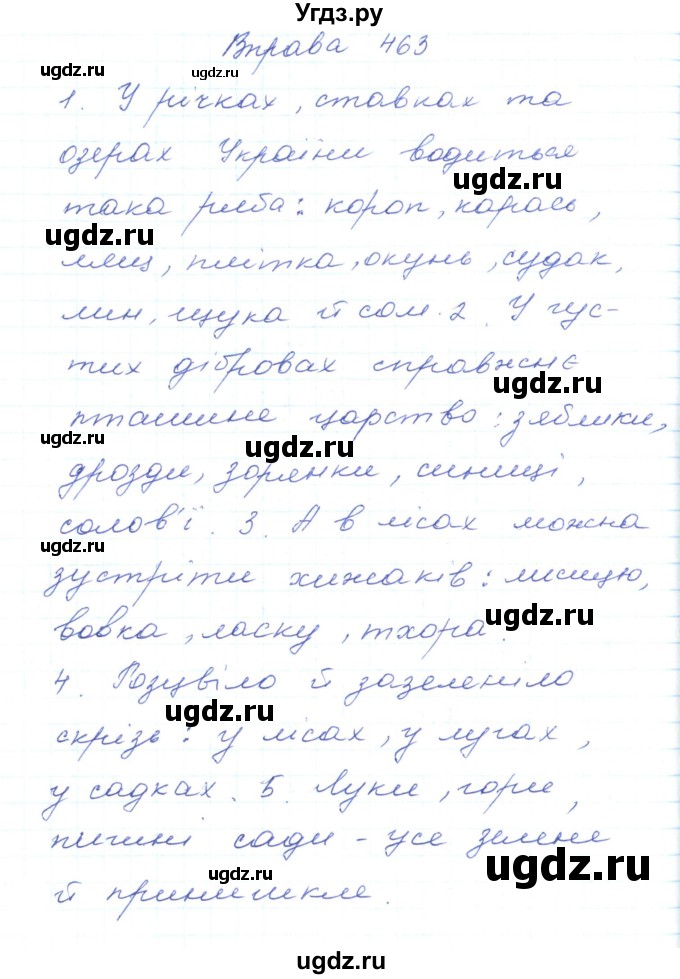 Угдз.ру
Вправа 463
ugdz.ru ugdz.ru
1. У річках, ставках та
озерах України водиться
ugdz.ru
така риба: короп, карась,
ugdz.ru
лящ, плітка, окунь, судак,
лин, щука й сом. 2. У гус-
тих дібровах справжнє
ugdz.ru
пташине царство: зяблики,
ugdz.ru ugdz.ru
дрозди, зорянки, синиці,
солов'ї. 3. А в лісах можна
ugdz.ru
зустріти хижаків: лисицю,
вовка, ласку, тхора.
ugdz.ru
4. Розцвіло й зазеленіло
ugdz.ru
скрізь: у лісах, у лугах,
у садках. 5. Луки, гори,
пишні сади – усе зелене
ugdz.ru ugdz.ru
й принишкле.
ugdz.ru